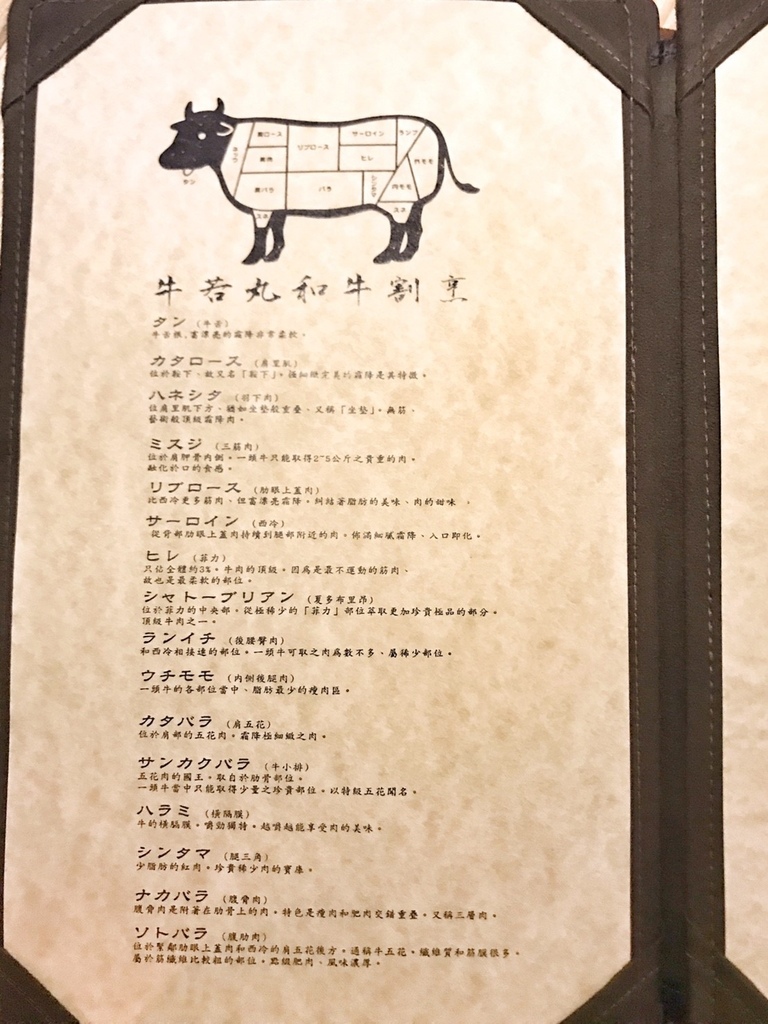 肩ロース
リブロース
サーロイン
ランプ
ネック
ヒレ
外モモ
肩バラ
バラ
シンタマ
内モモ
スネ
スネ
タン
牛若丸和牛割烹
タン (牛舌)
牛舌根,富漂亮的霜降非常柔軟。
カタロース (肩里肌)
位於鞍下、故又名「鞍下」。極細緻完美的霜降是其特徵。
ハネシタ (羽下肉)
位肩里肌下方、猶如坐墊般重疊、又稱「坐墊」。無筋、
藝術般頂級霜降肉。
ミスジ (三筋肉)
位於肩胛骨內側。一頭牛只能取得2~5公斤之貴重的肉。
融化於口的食感。
リブロース (肋眼上蓋肉)
比西冷更多筋肉、但富漂亮霜降。糾結著脂肪的美味、肉的甜味 。
サーロイン (西冷)
從背部肋眼上蓋肉持續到腿部附近的肉。佈滿細膩霜降、入口即化。
ヒレ (菲力)
只佔全體約3%。牛肉的頂級。因為是最不運動的筋肉、
故也是最柔軟的部位。
シャトーブリアン (夏多布里昂)
位於菲力的中央部。從極稀少的「菲力」部位萃取更加珍貴極品的部分。
頂級牛肉之一。
ランイチ (後腰臀肉)
和西冷相接連的部位。一頭牛可取之肉為數不多、屬稀少部位。
ウチモモ (內側後腿肉)
一頭牛的各部位當中、脂肪最少的瘦肉區。
カタバラ (肩五花)
位於肩部的五花肉。霜降極細緻之肉。
サンカクバラ (牛小排)
五花肉的國王。取自於肋骨部位。
一頭牛當中只能取得少量之珍貴部位。以特級五花聞名。
ハラミ (橫隔膜)
牛的橫膈膜。嚼勁獨特。越嚼越能享受肉的美味。
シンタマ (腿三角)
少脂肪的紅肉。珍貴稀少肉的寶庫。
ナカバラ (腹脅肉)
腹脅肉是附著在肋骨上的肉。特色是瘦肉和肥肉交錯重疊。又稱三層肉。
ソトバラ (腹肋肉)
位於緊鄰肋眼上蓋肉和西冷的肩五花後方。通稱牛五花。纖維質和筋膜很多。
屬於筋纖維比較粗的部位。點綴肥肉、風味濃厚。